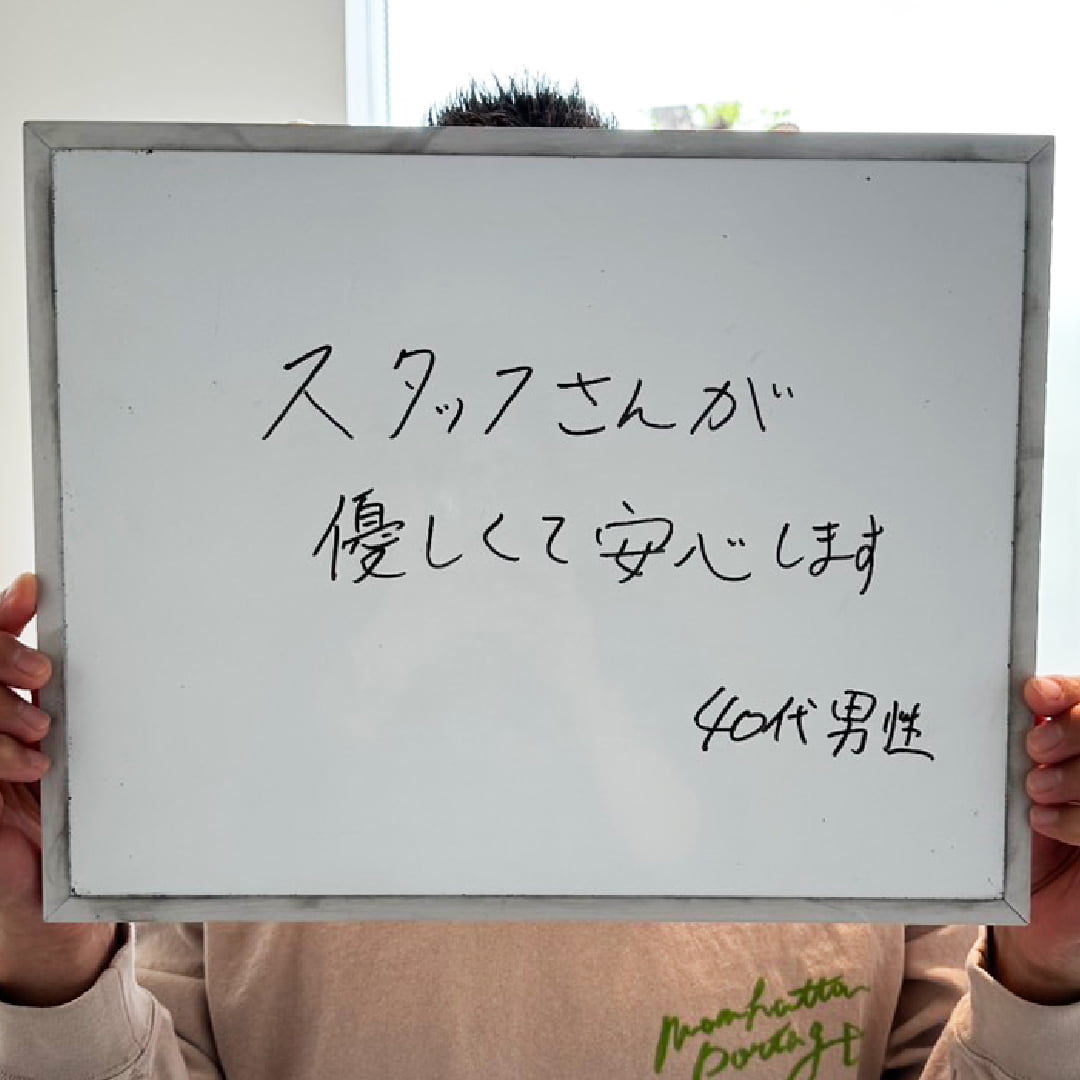 スタッフさんが
優しくて安心します
40代男性
Manhattan
Portage